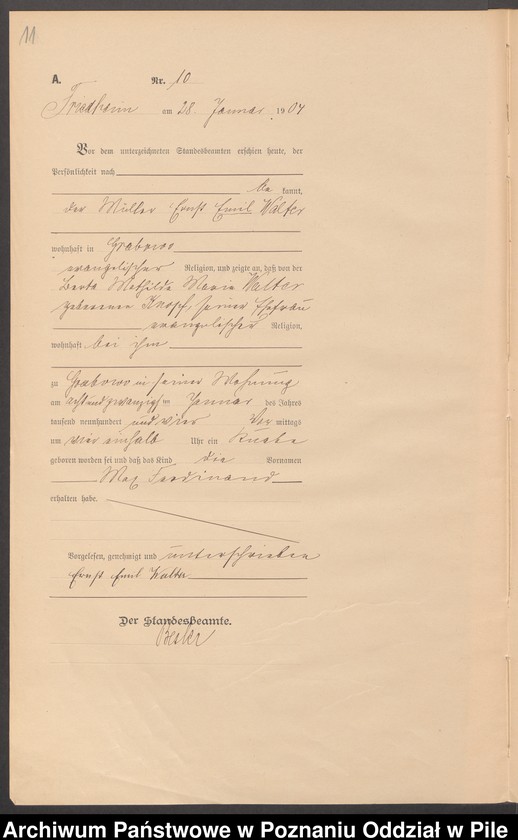 11
A.
Nr. 10
Friedheim am 28. Januar 1904
Vor dem unterzeichneten Standesbeamten erschien heute, der
Persönlichkeit nach
be kannt,
der Müller Ernst Emil Walter
wohnhaft in Grabowo
evangelischer Religion, und zeigte an, daß von der
Berta Mathilde Maria Walter
geborenen Knopf, seiner Ehefrau
evangelischer Religion,
wohnhaft bei ihm
zu Grabowo in seiner Wohnung
am achtundzwanzigsten Januar des Jahres
tausend neunhundert und vier Vor mittags
um vier einhalb Uhr ein Knabe
geboren worden sei und daß das Kind die Vornamen
Max Ferdinand
erhalten habe.
Vorgelesen, genehmigt und unterschrieben
Ernst Emil Walter
Der Standesbeamte.
Archiwum Państwowe w Poznaniu Oddział w Pile